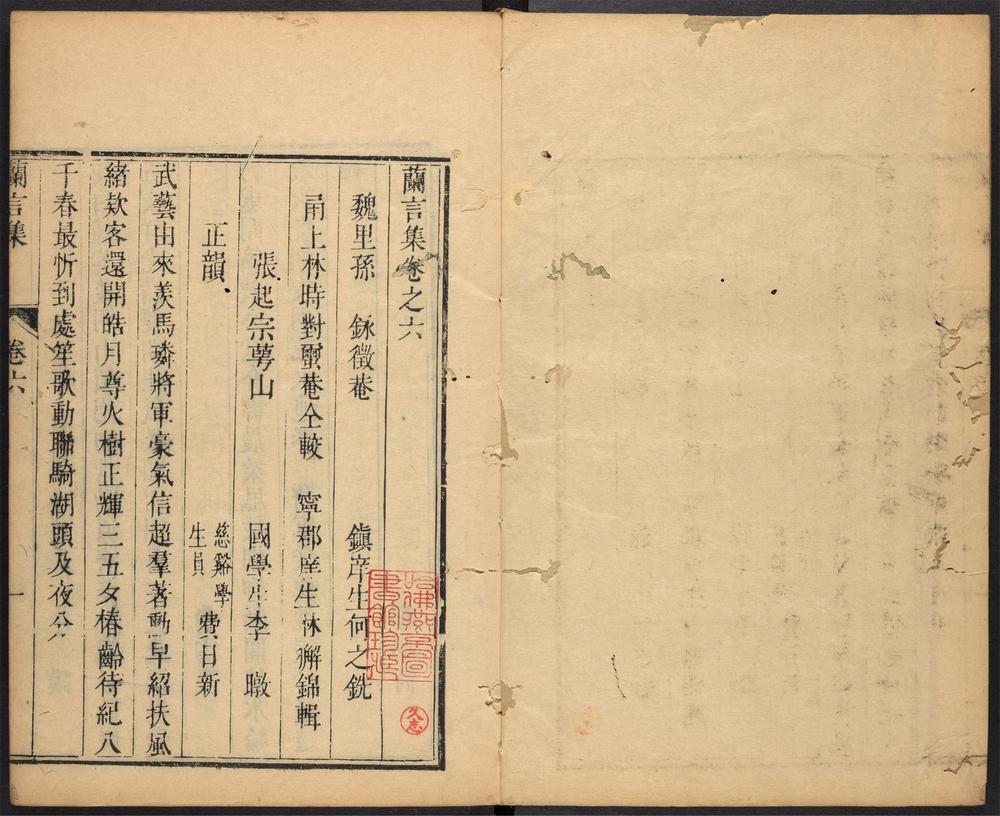 蘭言集卷之六
魏里孫　鉽徵菴　鎮庠生何之銑
甬上林時對蠒菴仝較　寧郡庠生林獬錦輯
張起宗蕚山　國學生李　暾
正韻　慈谿學生員　費日新
武藝由來羨馬璘將軍豪氣信超羣著勳早紹扶風
緒欵客還開皓月尊火樹正輝三五夕椿齡待紀八
千春最忻到處笙歌動聯騎湖頭及夜分
蘭言集　卷六　一
哈佛燕京圖書館珍藏
久志